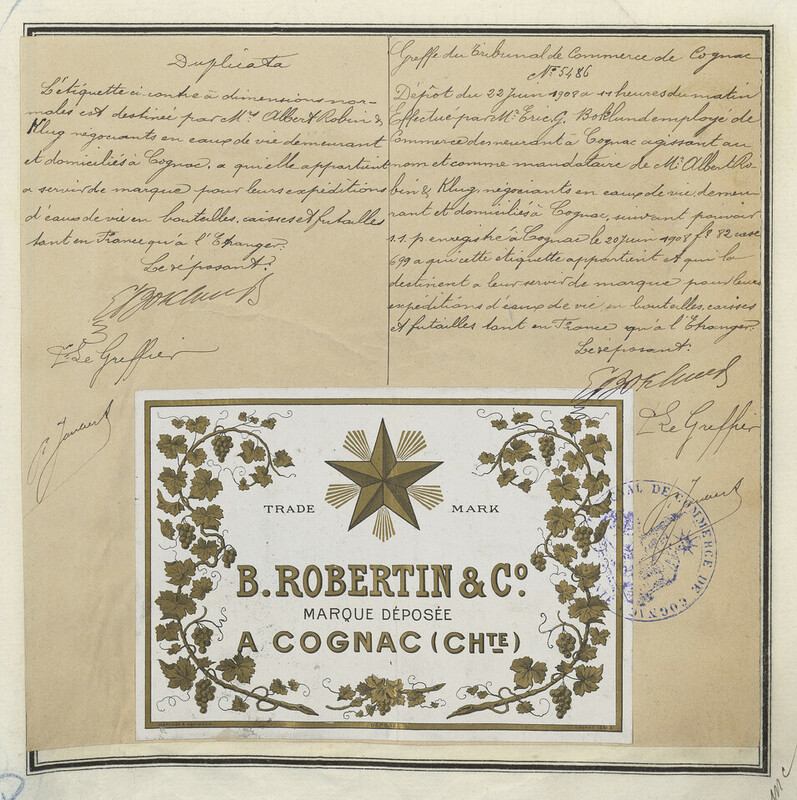 Duplicata
L'étiquette ci-contre à dimensions nor-
males est destinée par Mrs Albert Robin &
Klug négociants en eaux de vie demeurant
et domiciliés à Cognac, a qui elle appartient
a servir de marque pour leurs expéditions
d'eaux de vie en bouteilles, caisses et futailles
tant en France qu'à l'Etranger.
Le déposant.
EGBoklund
Le Greffier
Greffe du Tribunal de Commerce de Cognac
No 5486
Dépôt du 22 Juin 1908 a 11 heures du matin
Effectué par Mr Eric G. Boklund employé de
Commerce demeurant à Cognac agissant au
nom et comme mandataire de Mrs Albert Ro-
bin & Klug, négociants en eaux de vie, demeu-
rant et domiciliés à Cognac, suivant pouvoir
s.s.p. enregistré à Cognac le 20 Juin 1908 fo 82 case
699 a qui cette étiquette appartient et qui la
destinent a leur servir de marque pour leurs
expéditions d'eaux de vie en bouteilles, caisses
et futailles tant en France qu'à l'Etranger.
Le déposant.
EGBoklund
Le Greffier
TRADE MARK
B. ROBERTIN & Co.
MARQUE DÉPOSÉE
A COGNAC (CHTE)
TRIBUNAL DE COMMERCE DE COGNAC